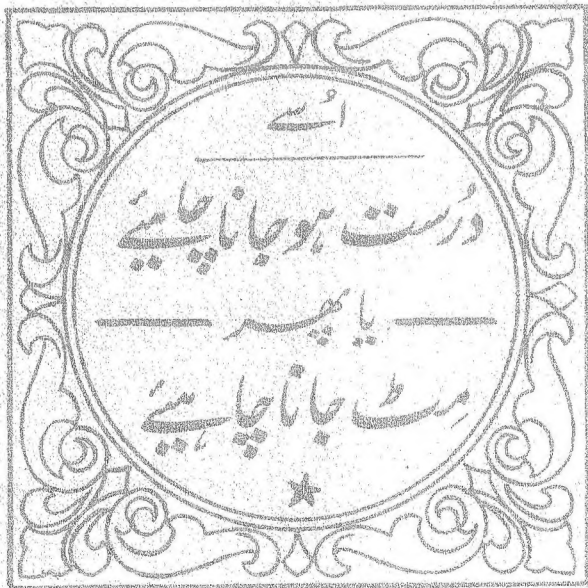 اُسے
درُست ہو جانا چاہیئے
یا پھر
مِٹ جانا چاہیئے